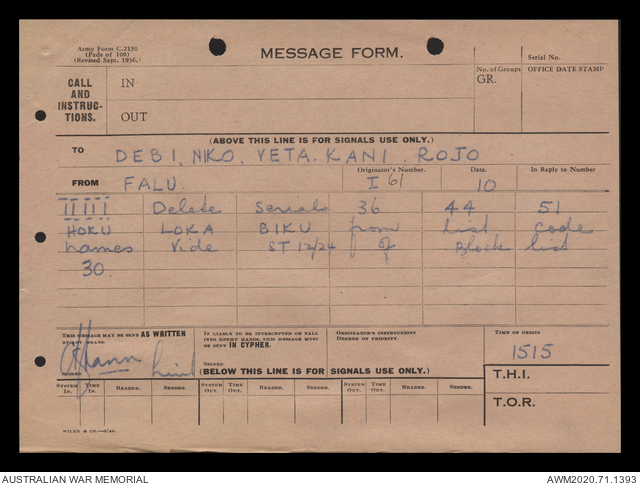 Army Form C.2130
(Pads of 100)
(Revised Sept. 1936.)
MESSAGE FORM.
Serial No.
CALL AND INSTRUC-TIONS.
IN
OUT
No. of Groups
GR.
OFFICE DATE STAMP
(ABOVE THIS LINE IS FOR SIGNALS USE ONLY.)
TO DEBI. NIKO. VETA. KANI. ROJO
FROM FALU.
Originator's Number. I 61
Date. 10
In Reply to Number
Delete Serials 36 44 51
HOKU LOKA BIKU from list code
names Vide ST 12/24 of Block list
30.
THIS MESSAGE MAY BE SENT AS WRITTEN
BY ANY MEANS.
SIGNED
IF LIABLE TO BE INTERCEPTED OR FALL
INTO ENEMY HANDS, THIS MESSAGE MUST
BE SENT IN CYPHER.
SIGNED
ORIGINATOR'S INSTRUCTIONS
DEGREE OF PRIORITY.
TIME OF ORIGIN
1515
(BELOW THIS LINE IS FOR SIGNALS USE ONLY.)
T.H.I.
T.O.R.
SYSTEM IN. TIME IN. READER. SENDER. SYSTEM OUT. TIME OUT. READER. SENDER. SYSTEM OUT. TIME OUT. READER. SENDER.
AUSTRALIAN WAR MEMORIAL
AWM2020.71.1393